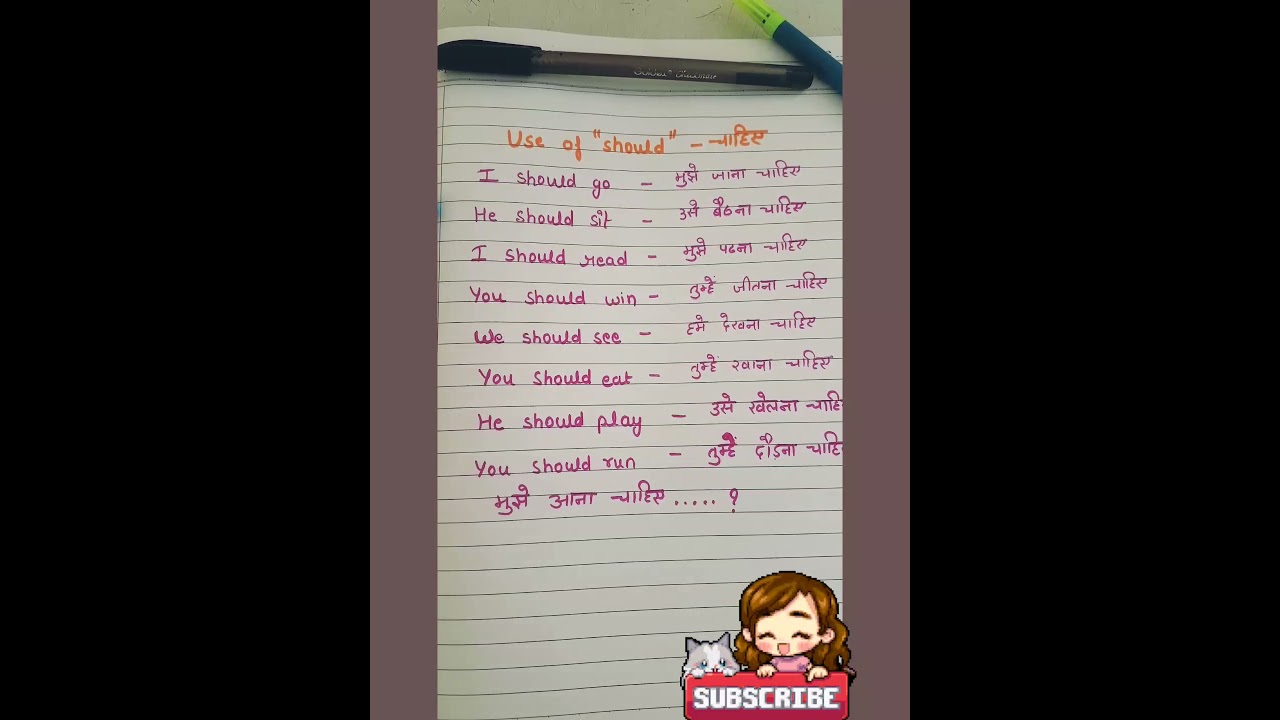 Use of "should" - चाहिए
I should go - मुझे जाना चाहिए
He should sit - उसे बैठना चाहिए
I should read - मुझे पढना चाहिए
You should win - तुम्हें जीतना चाहिए
We should see - हमे देखना चाहिए
You should eat - तुम्हें खाना चाहिए
He should play - उसे खेलना चाहि
You should run - तुम्हें दौड़ना चाहि
मुझे आना चाहिए ..... ?
SUBSCRIBE